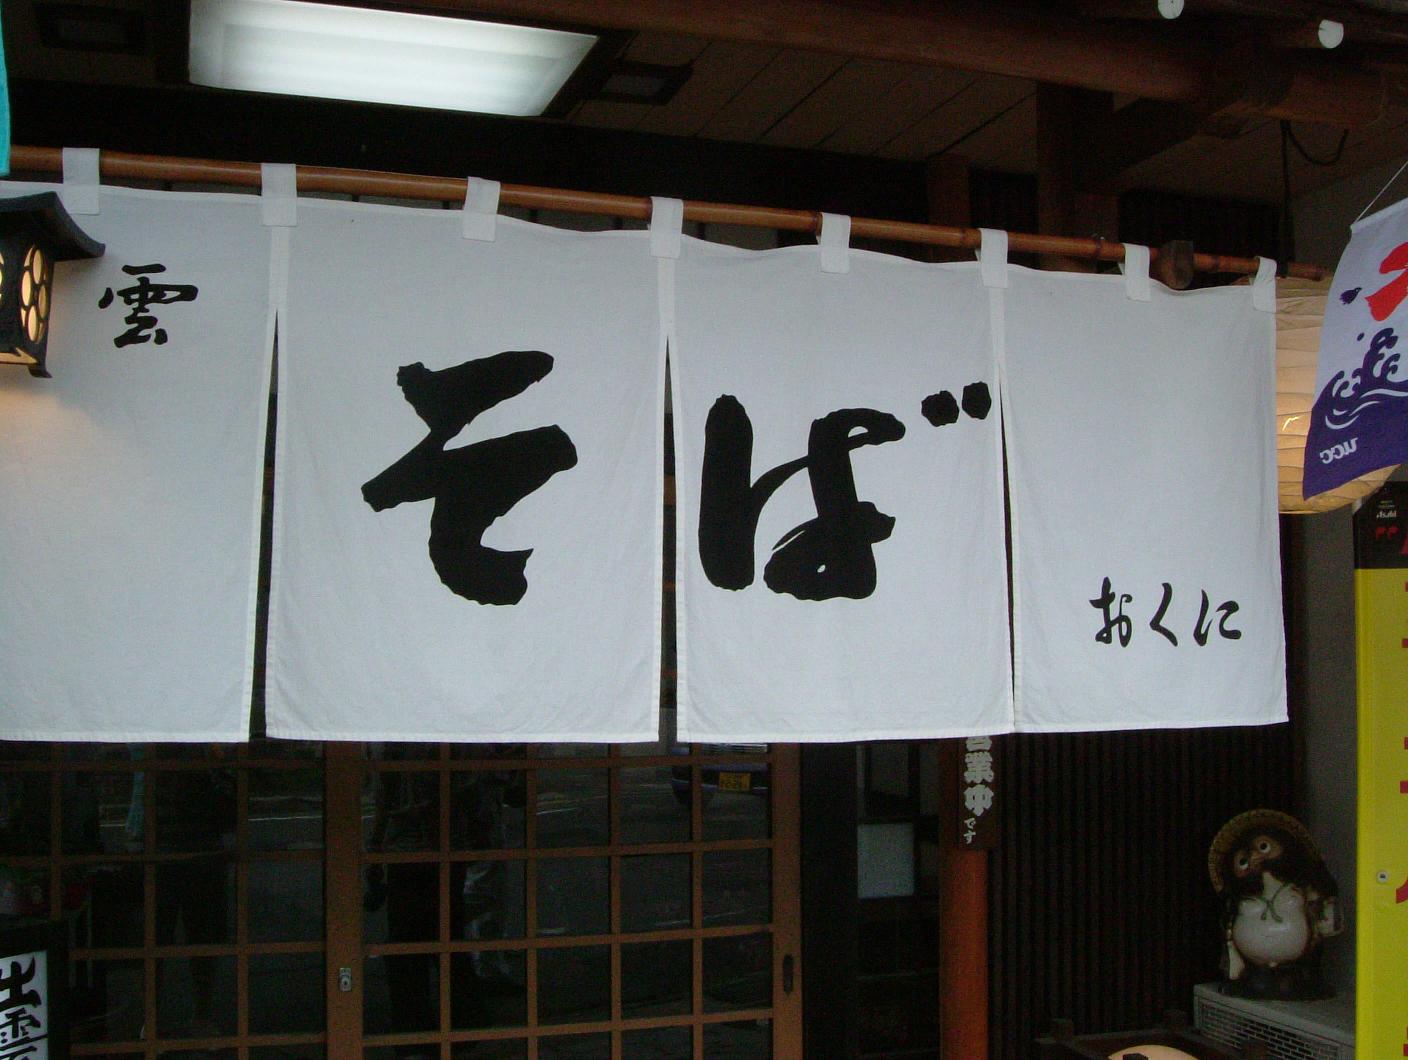 雲
そば
おくに
営業中です
出雲
氷
ucc
Asahi